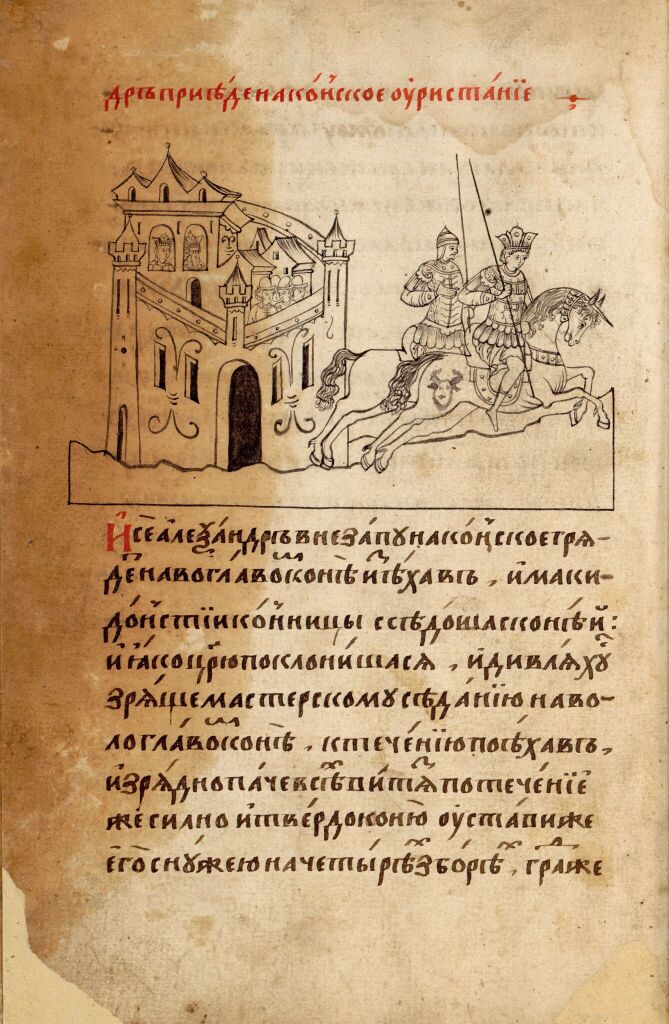 дръ приѣде на ко́нское оу҆риста́нїе
И҆ се а҆леѯа́ндръ внеза́пу на ко́нское гря-
де на воглаво́м конѣ и҆ ѣ҆хавъ , и҆ маки-
до́нстїи ко́нницы ссѣдо́ша с коне́й :
и҆ ꙗ҆́ко цр҃ю поклони́шася , и҆ дивля́хꙋ
зря́ще мастерскому сѣда́нїю на во-
логла́вом конѣ , к тече́нїю поѣ́хавъ ,
и҆зря́дно па́че всѣ́х
по тече́нїе
же си́лно и҆ тве́рдо коню̀ оу҆ста́виже
его̀ с ну́жею на четы́рѣх збо́рѣх , гра́ж҆е